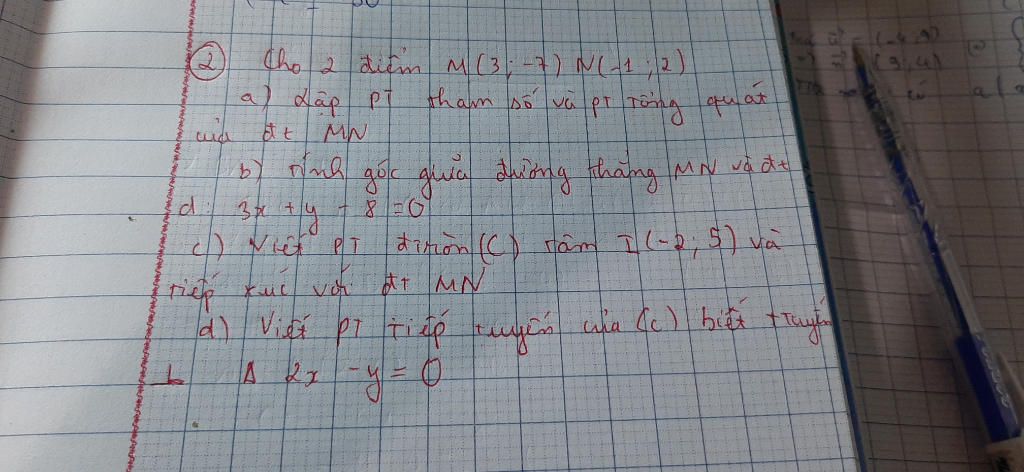 ② Cho 2 điểm M(3;-7) N(-1;2)
a) Lập PT tham số và PT tổng quát
của đt MN
b) Tính góc giữa đường thẳng MN và đt
d: 3x + y - 8 = 0
c) Viết PT đtròn (C) tâm I(-2;5) và
tiếp xúc với đt MN
d) Viết PT tiếp tuyến của (C) biết t tuyến
⊥ Δ 2x - y = 0